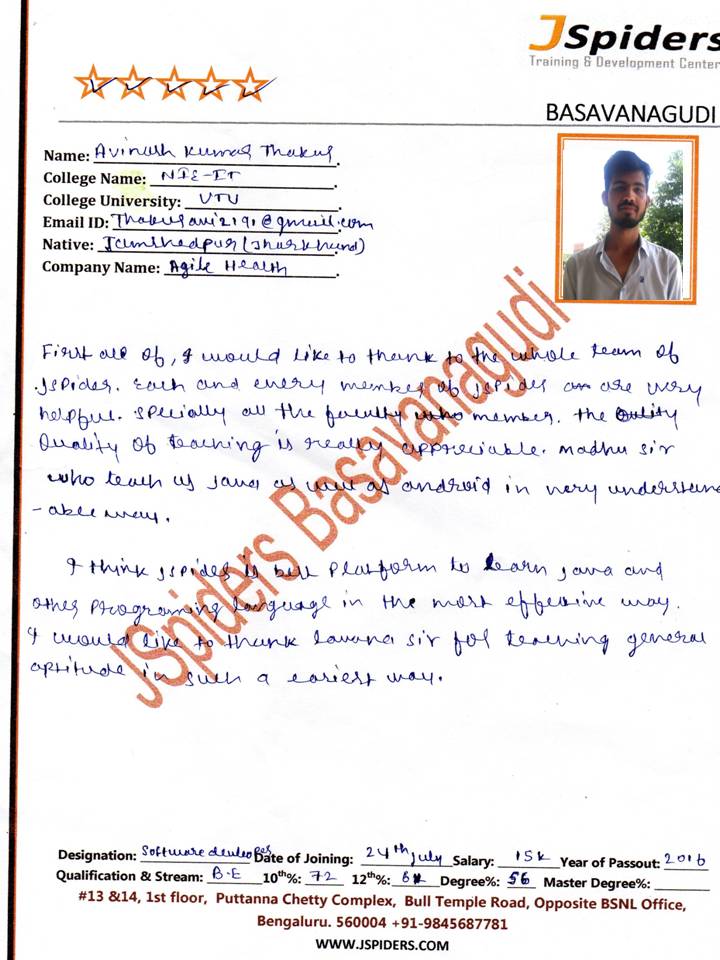 JSpiders
Training & Development Center
BASAVANAGUDI
Name: Avinash Kumar Thakur
College Name: NIE-IT
College University: VTU
Email ID: Thakuravi2191@gmail.com
Native: Jamshedpur (Jharkhand)
Company Name: Agile Health
First all of, I would like to thank to the whole team of
Jspider. Each and every member of jspider are very
helpful. Specially all the faculty who member. The Quility
Quality of teaching is really appreciable. Madhu sir
who teach us Java as well as android in very understand
-able way.
I think jspider is best Platform to learn java and
other programing language in the most effective way.
I would like to thank lavana sir for teaching general
aptitude in such a eariest way.
JSpiders Basavanagudi
Designation: Software developer Date of Joining: 24th July Salary: 15k Year of Passout: 2016
Qualification & Stream: B.E 10th%: 72 12th%: Degree%: 56 Master Degree%:
#13 &14, 1st floor, Puttanna Chetty Complex, Bull Temple Road, Opposite BSNL Office,
Bengaluru. 560004 +91-9845687781
WWW.JSPIDERS.COM